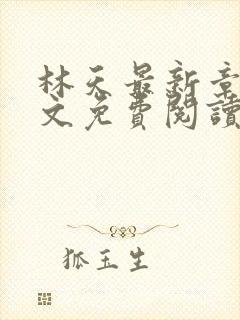 林天最新章
文免費閱讀
狐玉生